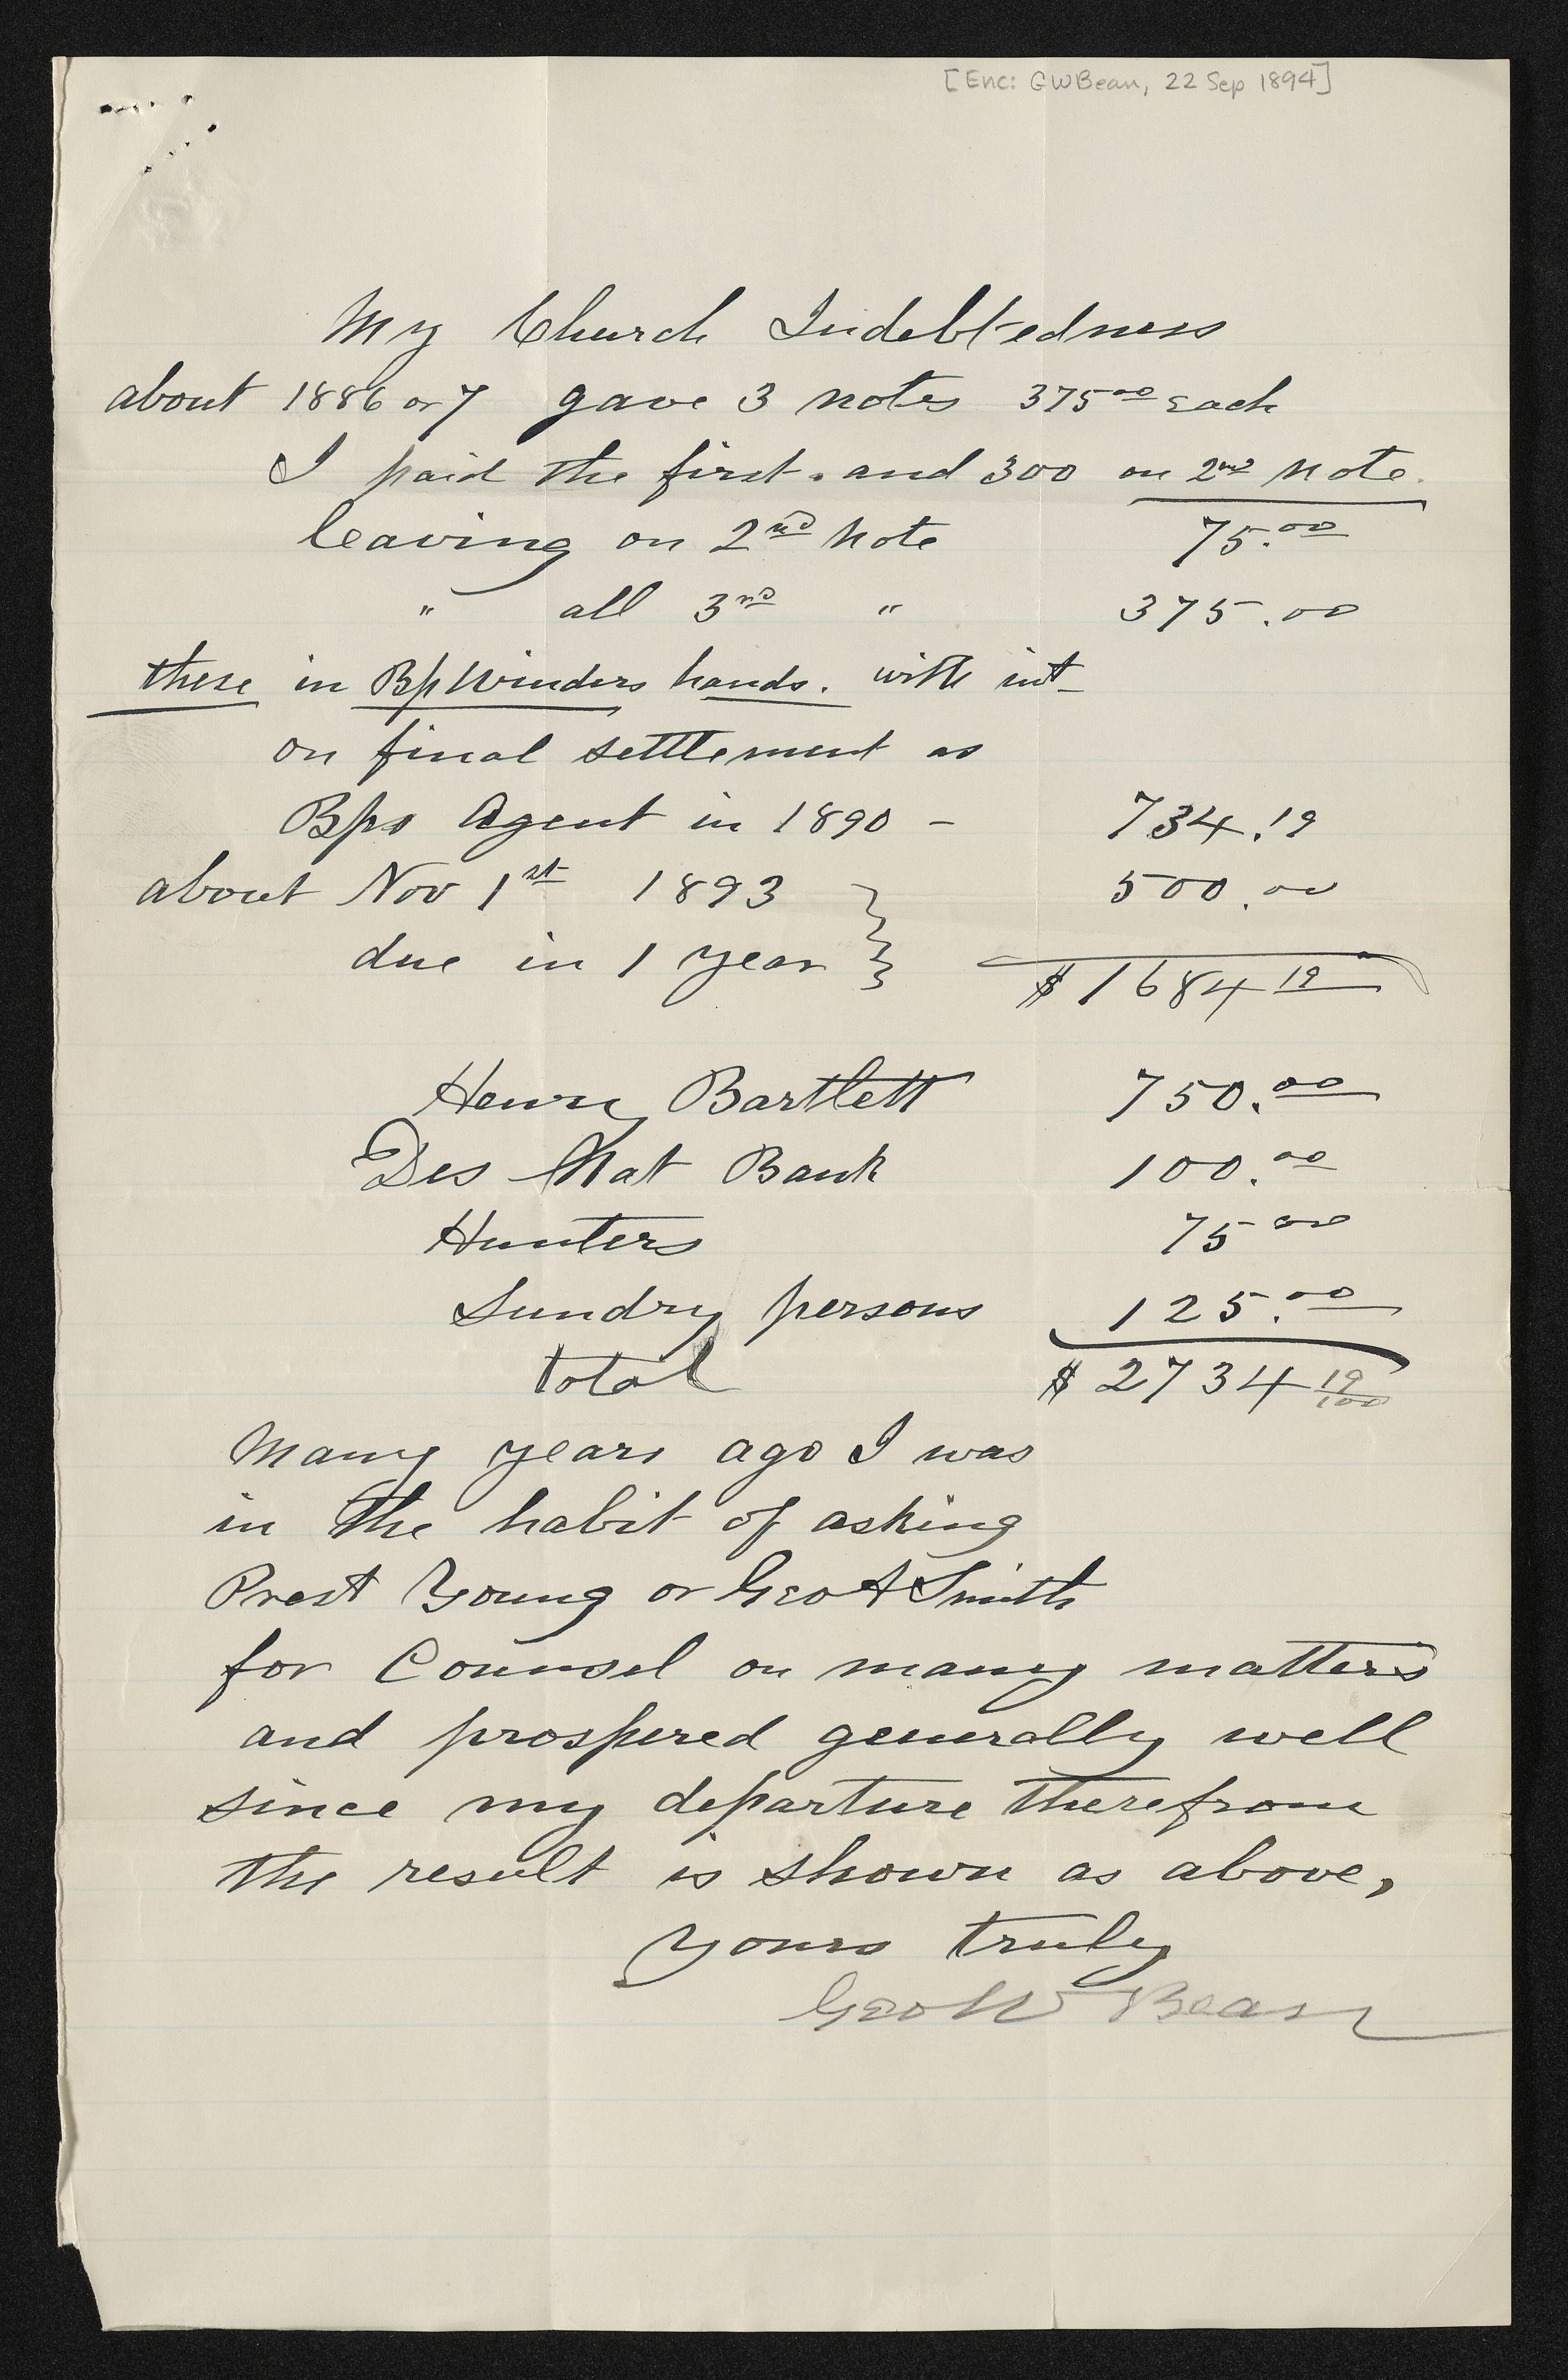 [Enc: GWBean, 22 Sep 1894]
My Church Indebtedness
about 1886 or 7 gave 3 notes 375.00 each
I paid the first. and 300 on 2nd note.
leaving on 2nd note 75.00
" all 3rd " 375.00
these in Bp Winders hands. with int_
on final settlement as
Bps Agent in 1890 – 734.19
about Nov 1st 1893 } 500.00
due in 1 year } $1684 19
Henry Bartlett 750.00
Des Nat Bank 100.00
Hunters 75 00
Sundry persons 125.00
total $2734 19/100
Many years ago I was
in the habit of asking
Prest Young or Geo A Smith
for Counsel on many matters
and prospered generally well
since my departure therefrom
the result is shown as above,
Yours truly
Geo W Bean